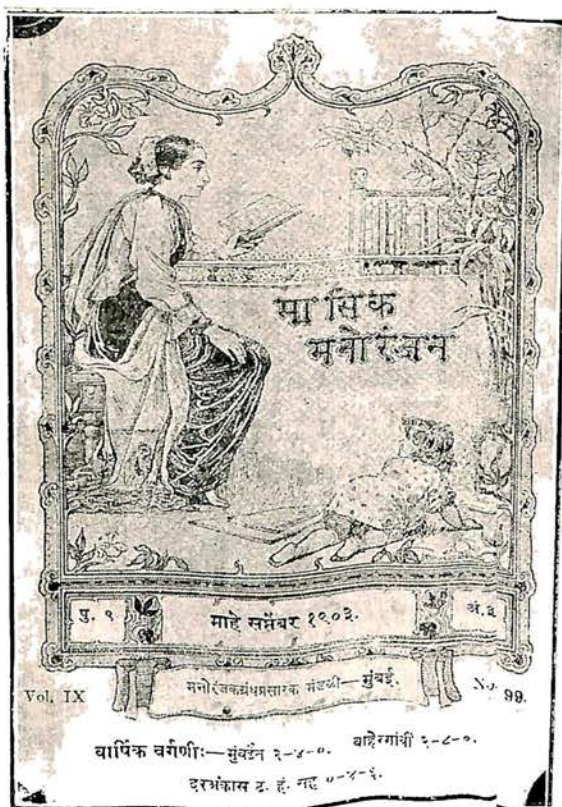 मासिक
मनोरंजन
पु. ९ माहे सप्तेंबर १९०३. अं. ३
मनोरंजकग्रंथप्रसारक मंडळी—मुंबई.
Vol. IX No. 99.
वार्षिक वर्गणीः—मुंबईंत २-४-०. बाहेरगांवीं २-८-०.
दरअंकास ट. हं. सह ०-४-६.